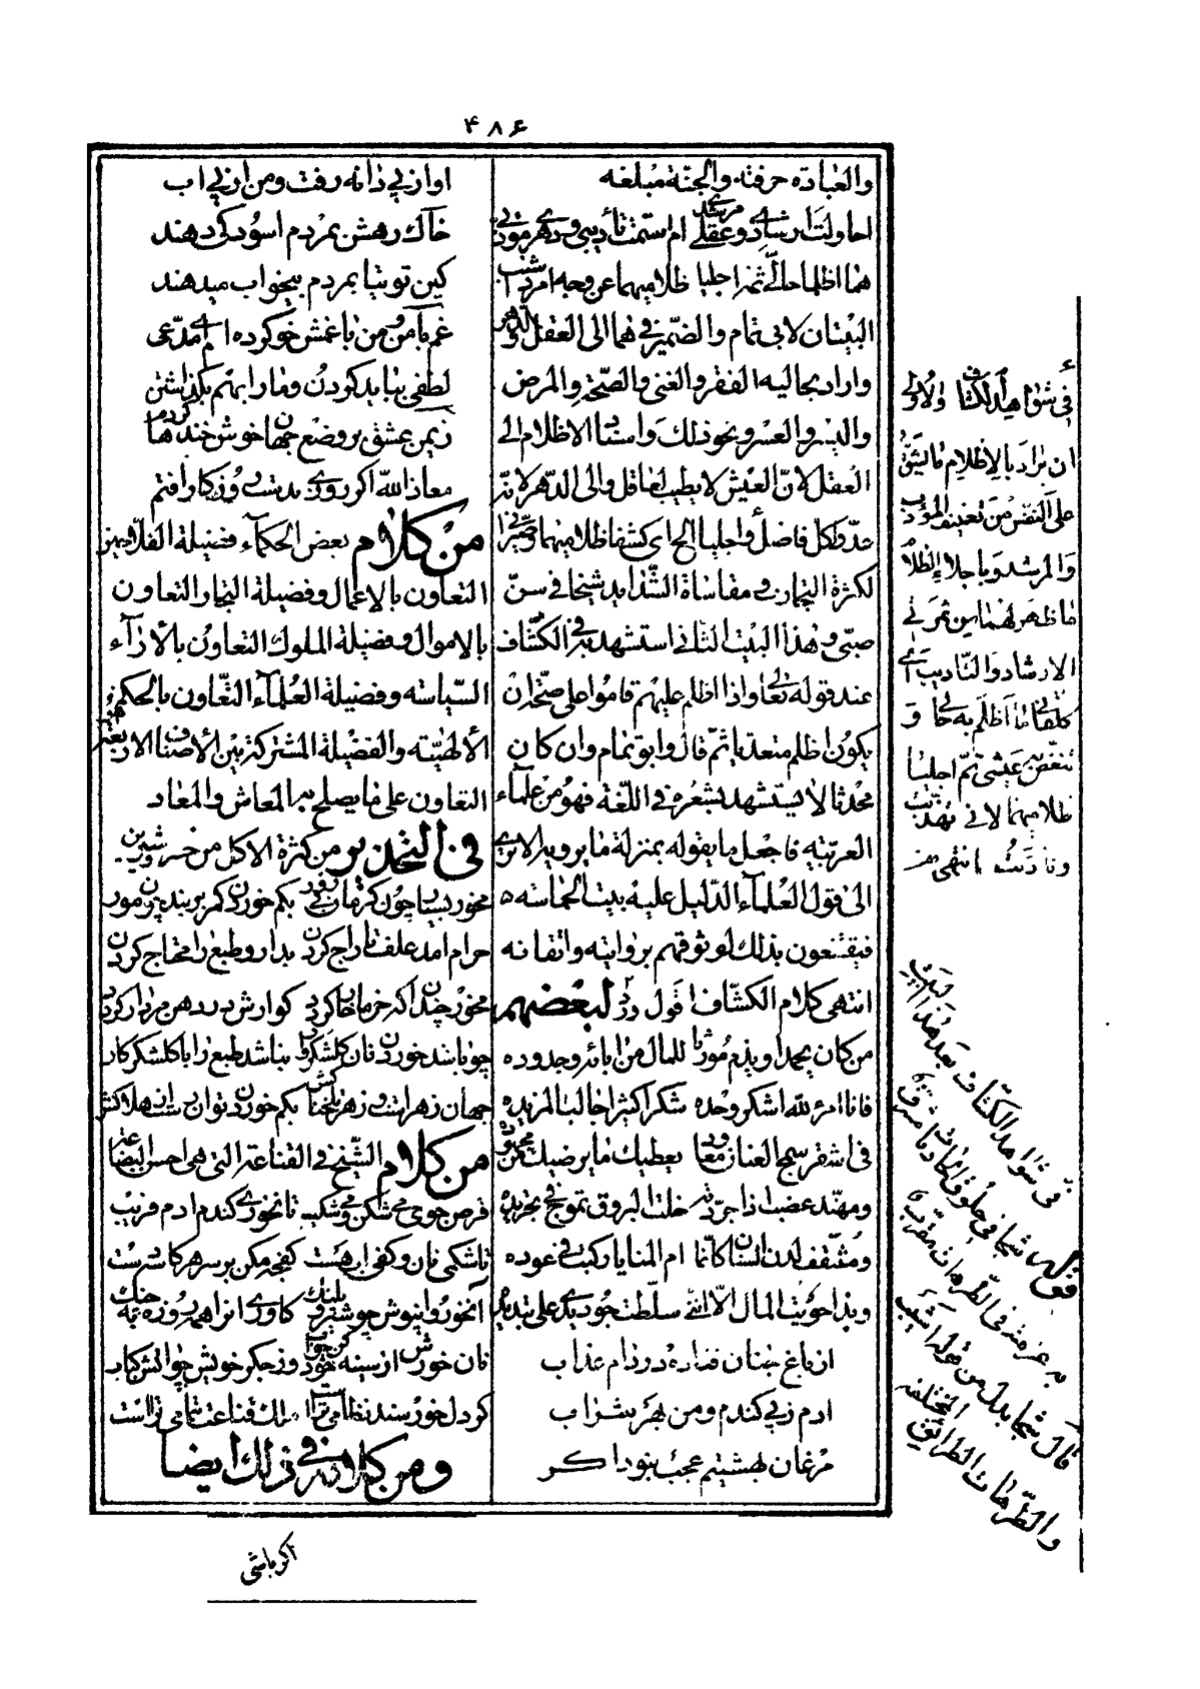 ۴۸۶
والعبادة حرفته والجنة مبلغه
احاولت ارشادي وعقلي مرشدي ام استمت تأديبي ودهري مؤدبي
هما اظلما حالي ثمة اجليا ظلاميهما عن وجه امرد اشيب
البيتان لابي تمام والضمير في هما الى العقل والدهر
واراد بحاليه الفقر والغنى والصحة والمرض
واليسر والعسر ونحو ذلك واسناد الاظلام الى
العقل لان العيش لا يطيب لعاقل والى الدهر لانه
عدو لكل فاضل واجليا الخ اي كشفا ظلاميهما وصيراني
لكثرة التجارب ومقاساة الشدايد شيخا في سن
صبي وهذا البيت الثاني استشهد به في الكشاف
عند قوله تعالى واذا اظلم عليهم قاموا على صحة ان
يكون اظلم متعديا ثم قال وابو تمام وان كان
محدثا لا يستشهد بشعره في اللغة فهو من علماء
العربية فاجعل ما يقوله بمنزلة ما يرويه الا ترى
الى قول العلماء الدليل عليه بيت الحماسه
فيقتنعون بذلك لوثوقهم بروايته واتقانه
انتهى كلام الكشاف اقول لبعضهم
من كان يحمد او يذم مورثا للمال من ابائه وجدوده
فانا امرؤ لله اشكر وحده شكرا كثيرا جالبا لمزيده
في اشقر سمح العنان معاود يعطيك ما يرضيك من مجهوده
ومهند عضب اذا جردته خلت البروق تموج في تجريده
ومثقف لدن السنان كانما ام المنايا ركبت في عوده
وبذا حويت المال الا انني سلطت جود يدي على تبديده
از باغ جنان فتاده در دام عذاب
ادم ز پي كندم ومن بهر شراب
مرغان بهشتيم عجب نبود اكر
او از پي دانه رفت ومن از پي اب
خاك رهش بمردم اسوده كى دهند
كين توتيا بمردم بيخواب ميدهند
غم با من ومن با غمش خو كرده ام اي مدعي
لطفي بنمايد كردن ومارا بهم بكذاشتن
زيمن عشق بر وضع جهان خوش خنده ها كردم
معاذ الله اكر روزي بدست روزكار افتم
من كلام بعض الحكماء فضيلة الفلاحين
التعاون بالاعمال وفضيلة التجار التعاون
بالاموال وفضيلة الملوك التعاون بالاراء
السياسته وفضيلة العلماء التعاون بالحكم
الالهيته والفضيلة المشتركة بين الاصناف الاربعة
التعاون على ما يصلح به المعاش والمعاد
في التحذير من كثرة الاكل من خسرو شيرين
مخور بسيار چون كرمان بي زور بكم خوردن كمر بربند چون مور
حرام امد علف تاراج كردن بدارو طبع را محتاج كردن
مخور چندان كه خرما خار كردد كوارش در دهن مردار كردد
چو باشد خوردن نان كلشكر وار نباشد طبع را با كلشكر كار
جهان زهر است وزهر تلخناكش بكم خوردن توان رست از هلاكش
من كلام الشيخ في القناعة التي هي احسن البضاعة
قرص جوي مي شكن ومي شكيب تا نخوري كندم ادم فريب
تا شكمي نان وكفي اب هست كفچه مكن بر سر هر كاسه دست
آنخور وانپوش چو شير وپلنك كاوري انرا همه روزه به چنك
نان خورش از سينه خود كن چو اب وز جكر خويش چو اتش كباب
كر دل خورسند نظامي تراست ملك قناعت بتمامي تراست
ومن كلامه في ذلك ايضا
اكر باشي
في شواهد الكشاف والاولى
ان يراد بالاظلام ما يشق
على النفس من تعنيف المؤدب
والمرشد وباجلاء الظلام
ما ظهر لهما من ثمرتي
الارشاد والتاديب اي
ثم اجليا
ظلاميهما
انتهى منه
في شواهد الكشاف بعد هذا البيت
قال شجا بدل من قوله اشيب
والطرهات الطرائق المختلفه